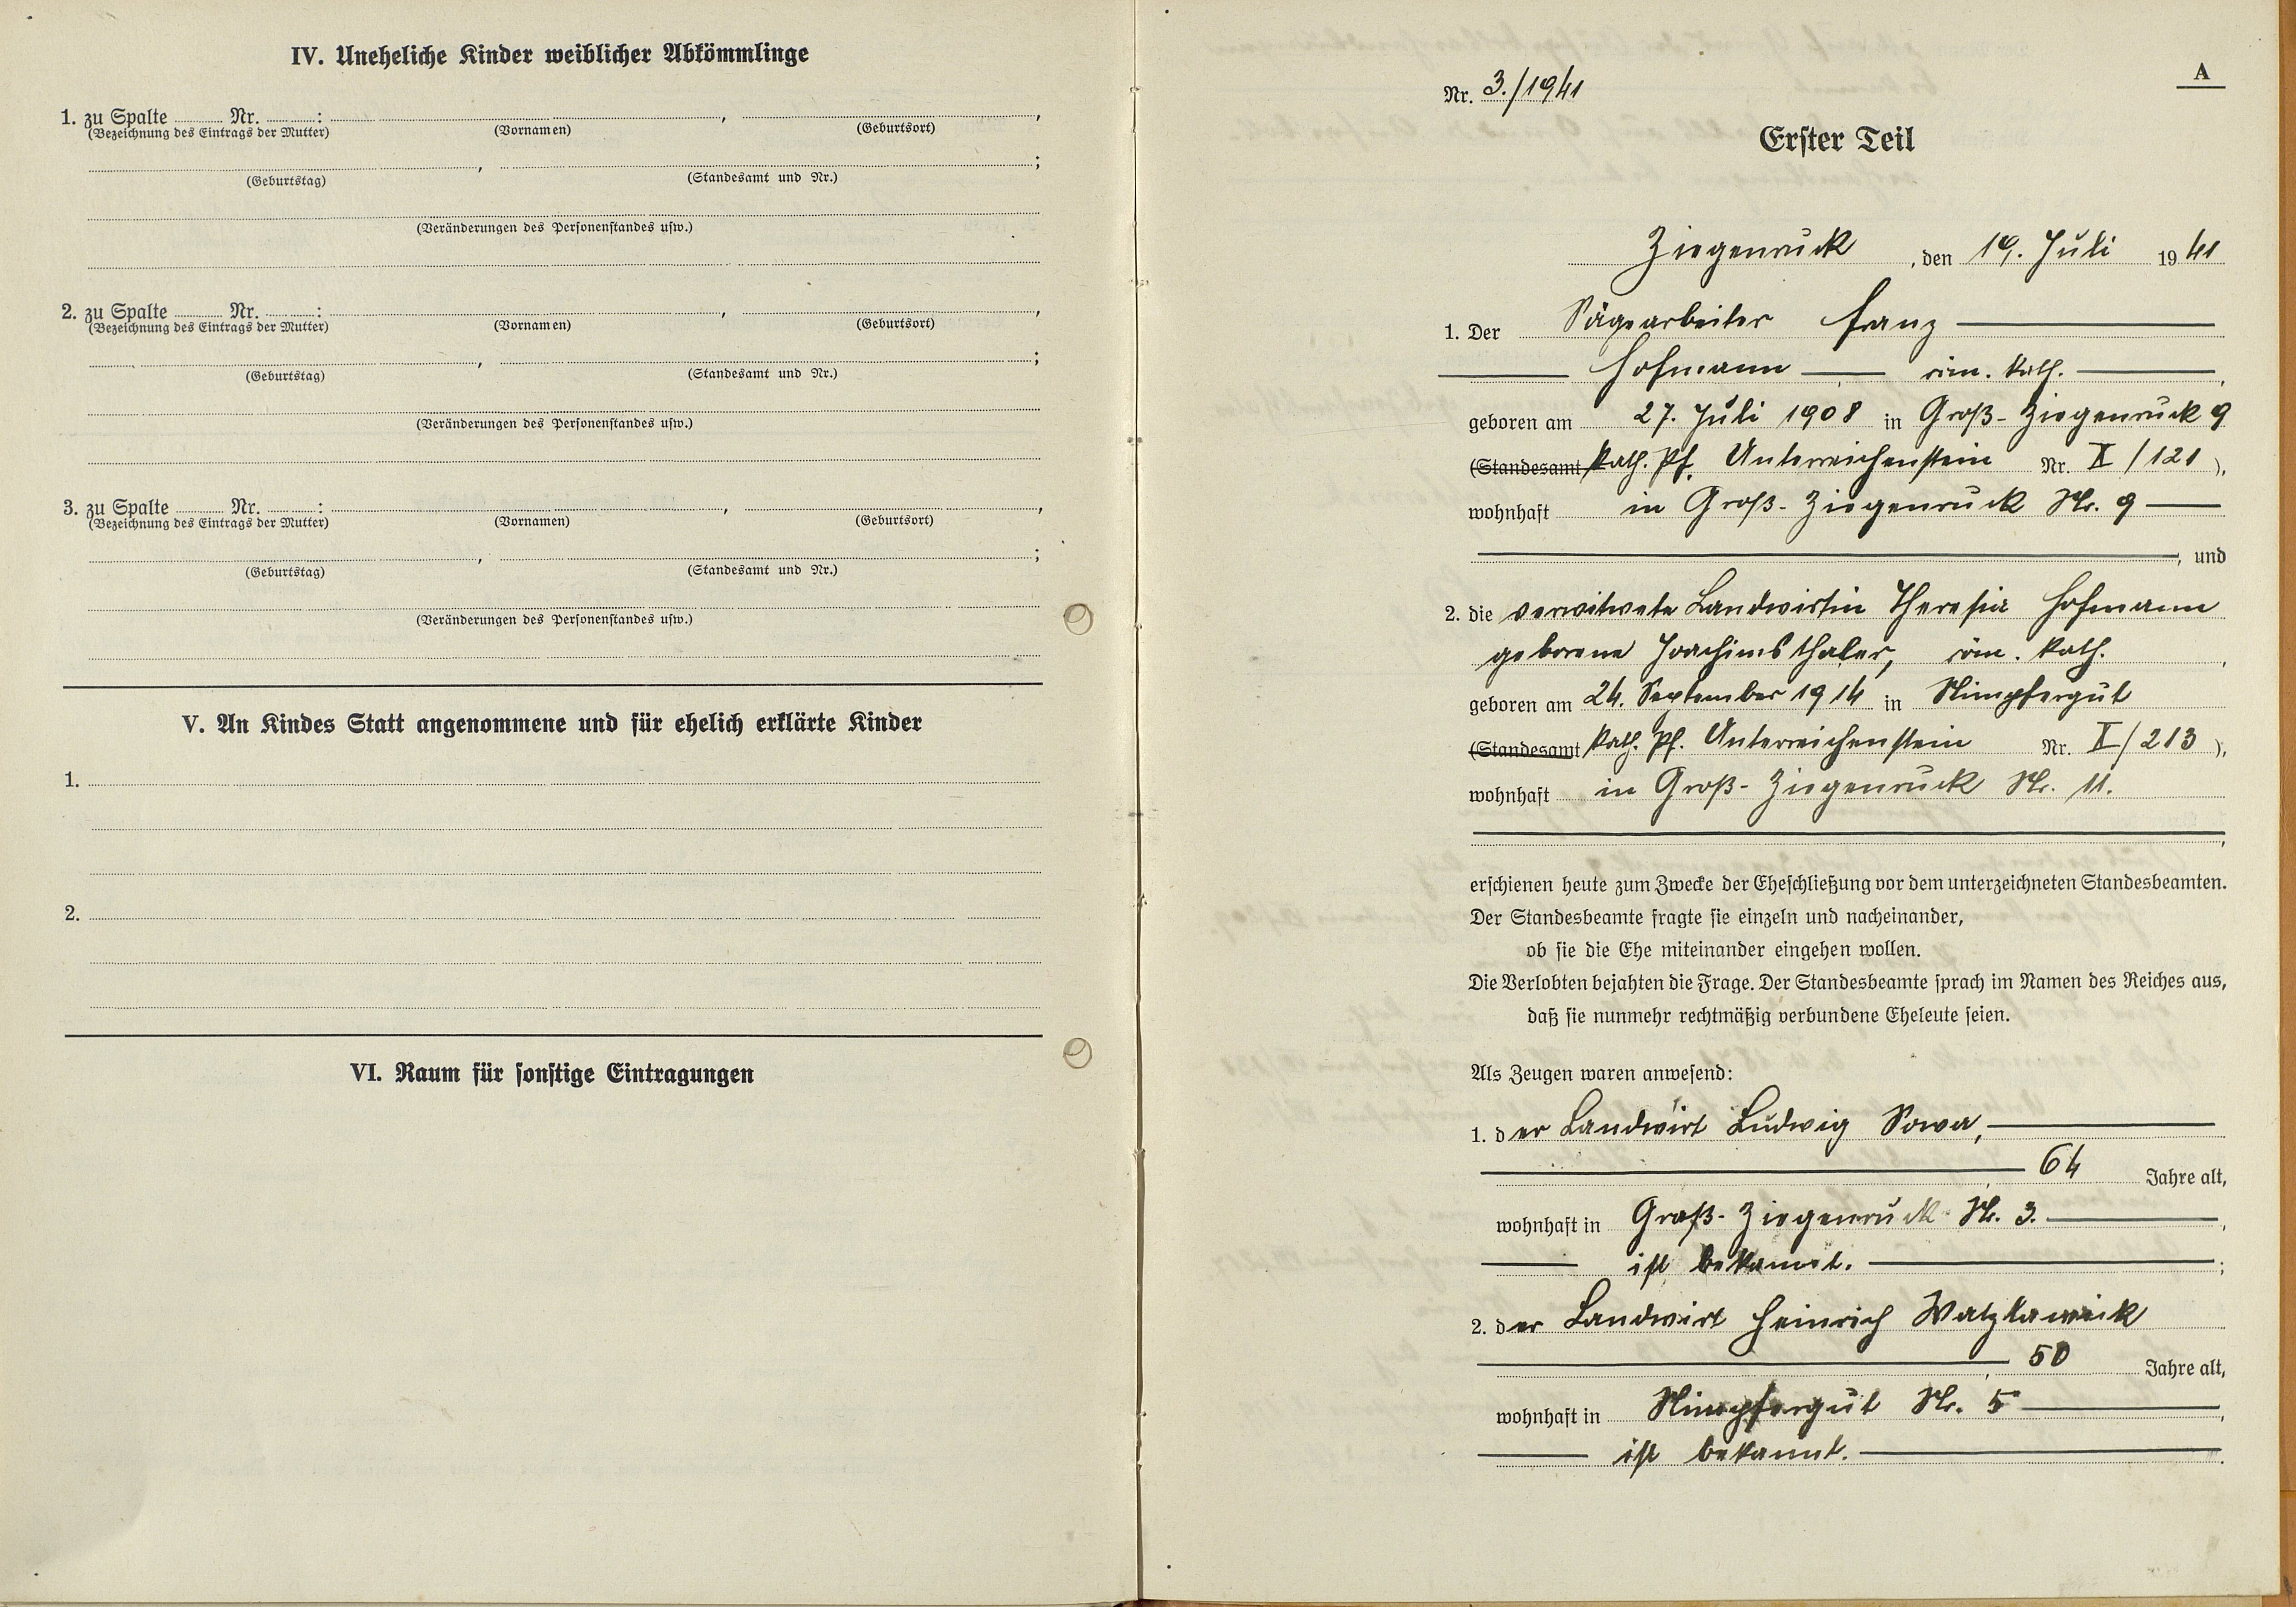 IV. Uneheliche Kinder weiblicher Abkömmlinge
1. zu Spalte ........ Nr. ........: ........, ........,
(Bezeichnung des Eintrags der Mutter) (Vornamen) (Geburtsort)
........, ........;
(Geburtstag) (Standesamt und Nr.)
(Veränderungen des Personenstandes usw.)
2. zu Spalte ........ Nr. ........: ........, ........,
(Bezeichnung des Eintrags der Mutter) (Vornamen) (Geburtsort)
........, ........;
(Geburtstag) (Standesamt und Nr.)
(Veränderungen des Personenstandes usw.)
3. zu Spalte ........ Nr. ........: ........, ........,
(Bezeichnung des Eintrags der Mutter) (Vornamen) (Geburtsort)
........, ........;
(Geburtstag) (Standesamt und Nr.)
(Veränderungen des Personenstandes usw.)
V. An Kindes Statt angenommene und für ehelich erklärte Kinder
1.
2.
VI. Raum für sonstige Eintragungen
A
Nr. 3./1941
Erster Teil
Ziegenruck, den 19. Juli 1941
1. Der Sägearbeiter Franz
Hofmann röm. kath.,
geboren am 27. Juli 1908 in Groß-Ziegenruck 9
(Standesamt kath. Pf. Unterreichenstein Nr. X/121),
wohnhaft in Groß-Ziegenruck Nr. 9
, und
2. die verwitwete Landwirtin Theresia Hofmann
geborene Joachimsthaler, röm. kath.,
geboren am 24. September 1914 in Nimpfergut
(Standesamt kath. Pf. Unterreichenstein Nr. X/213),
wohnhaft in Groß-Ziegenruck Nr. 11.
,
erschienen heute zum Zwecke der Eheschließung vor dem unterzeichneten Standesbeamten.
Der Standesbeamte fragte sie einzeln und nacheinander,
ob sie die Ehe miteinander eingehen wollen.
Die Verlobten bejahten die Frage. Der Standesbeamte sprach im Namen des Reiches aus,
daß sie nunmehr rechtmäßig verbundene Eheleute seien.
Als Zeugen waren anwesend:
1. der Landwirt Ludwig Sowa,
, 64 Jahre alt,
wohnhaft in Groß-Ziegenruck Nr. 3.,
ist bekannt.;
2. der Landwirt Heinrich Watzlawick
, 50 Jahre alt,
wohnhaft in Nimpfergut Nr. 5,
ist bekannt.